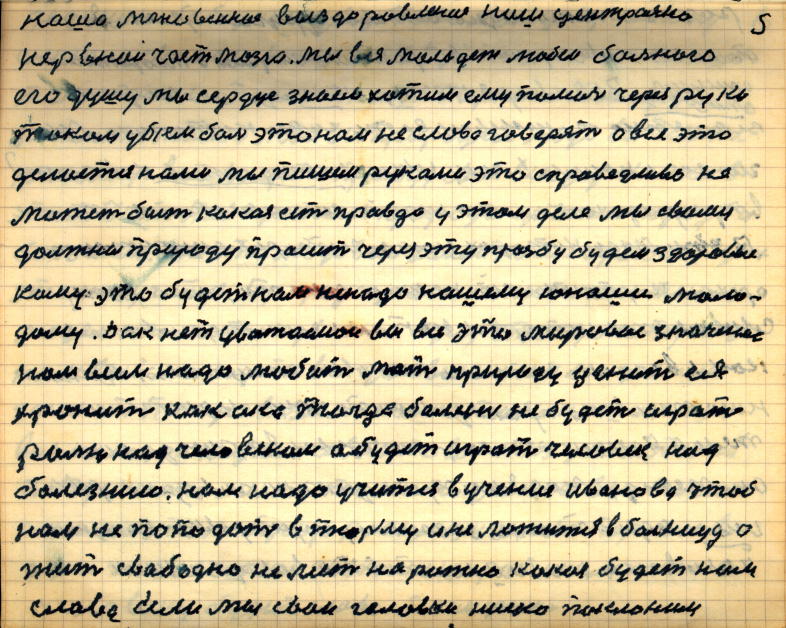 наша мгновенное выздоровление наш централно
нервной част мозга. мы вся молодеж любов болного
его душу мы сердце знаем хотим ему помоч через руки
током убъем бол это нам не слова говерят а все это
делается нами мы пишем руками это справедливо не
может быт какая ест правда у этом деле мы своими
должны природу просит через эту прозбу будем здоровые
кому это будет нам ненадо нашему юноши моло-
дому. Дак нет уважаемои вы все это мировое значение
нам всем надо любит мат природу ценит ея
хронит как око тогда болзн не будет играт
ролю над человеком а будет играт человек над
болезнию. нам надо учится в учение Иванова чтоб
нам не пападат в тюрму и не ложится в болницу а
жит свабодно не лезт на рожно какая будет нам
слава если мы свои головки ниско поклоним
5